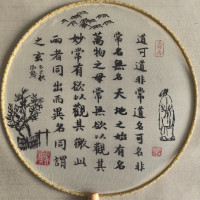 道可道非常道名可名非
常名無名天地之始有名
萬物之母常無欲以觀其
妙常有欲以觀其徼此
兩者同出而異名同謂
之玄